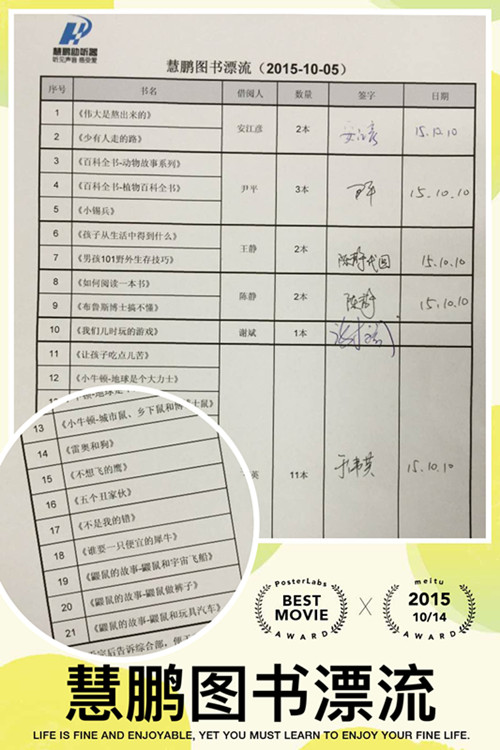 慧鹏助听器
听见声音 感受爱
慧鹏图书漂流（2015-10-05）
序号 书名 借阅人 数量 签字 日期
1 《伟大是熬出来的》
安江彦 2本 安江彦 15.10.10
2 《少有人走的路》
3 《百科全书-动物故事系列》
4 《百科全书-植物百科全书》 尹平 3本 15.10.10
5 《小锡兵》
6 《孩子从生活中得到什么》
王静 2本 陈静代园 15.10.10
7 《男孩101野外生存技巧》
8 《如何阅读一本书》
陈静 2本 陈静 15.10.10
9 《布鲁斯博士搞不懂》
10 《我们儿时玩的游戏》 谢斌 1本
11 《让孩子吃点儿苦》
12 《小牛顿-地球是个大力士》
英 11本 15.10.10
13 《小牛顿-城市鼠、乡下鼠和博士鼠》
14 《雷奥和狗》
15 《不想飞的鹰》
16 《五个丑家伙》
17 《不是我的错》
18 《谁要一只便宜的犀牛》
19 《鼹鼠的故事-鼹鼠和宇宙飞船》
20 《鼹鼠的故事-鼹鼠做裤子》
21 《鼹鼠的故事-鼹鼠和玩具汽车》
完后告诉综合部，便于
PosterLabs
BEST
MOVIE
AWARD
meitu
2015
10/14
AWARD
慧鹏图书漂流
LIFE IS FINE AND ENJOYABLE, YET YOU MUST LEARN TO ENJOY YOUR FINE LIFE.